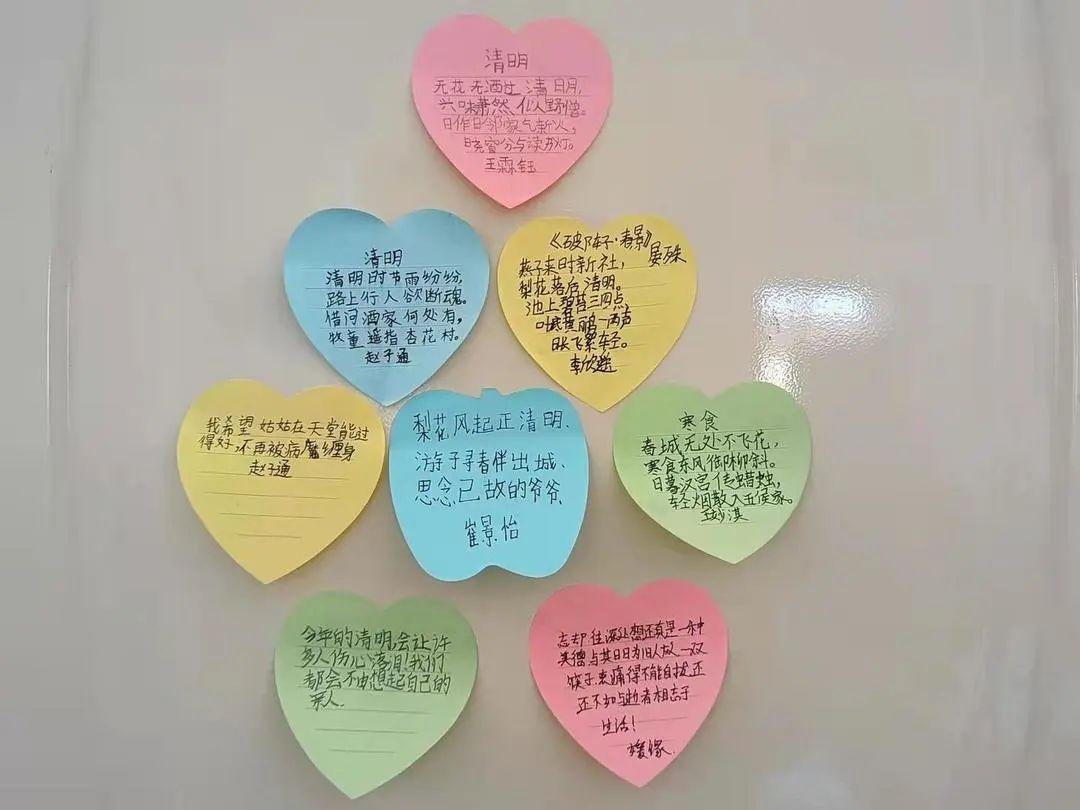 清明
无花无酒过清明,
兴味萧然似野僧。
昨日邻家乞新火,
晓窗分与读书灯。
王霖钰
清明
清明时节雨纷纷,
路上行人欲断魂。
借问酒家何处有,
牧童遥指杏花村。
赵子通
《破阵子·春景》
晏殊
燕子来时新社,
梨花落后清明。
池上碧苔三四点,
叶底黄鹂一两声
日长飞絮轻。
李欣
我希望姑姑在天堂能过
得好,不再被病魔缠身
赵子通
梨花风起正清明、
游子寻春伴出城、
思念已故的爷爷、
崔景怡
寒食
春城无处不飞花,
寒食东风御柳斜。
日暮汉宫传蜡烛,
轻烟散入五侯家。
淇
今年的清明,会让许
多人伤心落泪!我们
都会不由想起自己的
亲人.
忘却往深处想还真是一种
美德与其日日为旧人放一双
筷子束痛得不能自拔还
还不如与逝者相忘于
生活!
媛缘.